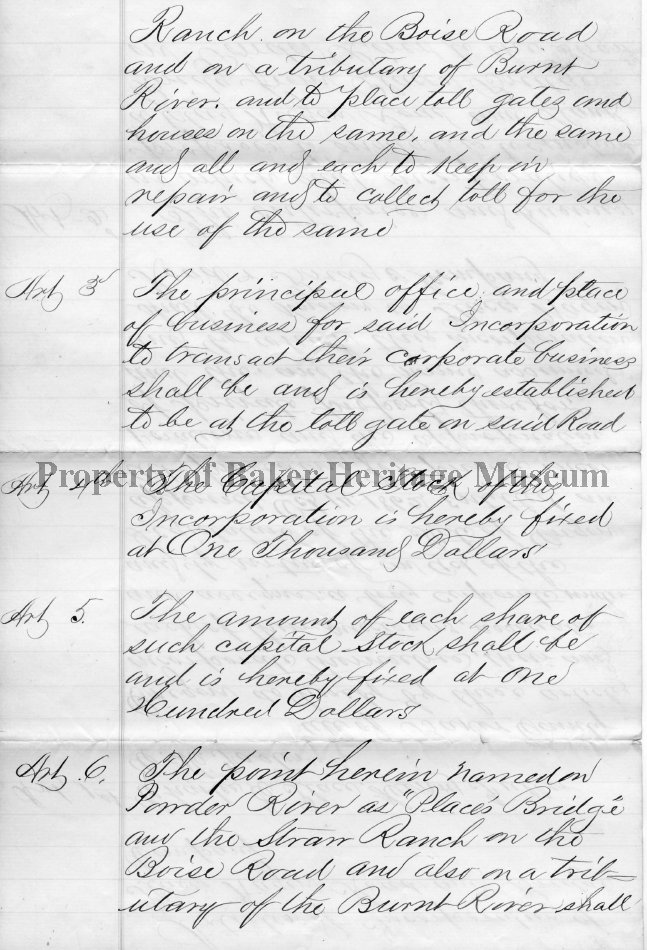 Ranch on the Boise Road
and on a tributary of Burnt
River. and to place toll gates and
houses on the same, and the same
and all and each to keep in
repair and to collect toll for the
use of the same
Art 3d The principal office and place
of business for said Incorporation
to transact their corporate business
shall be and is hereby established
to be at the toll gate on said Road
Property of Baker Heritage Museum
Art 4th The Capital Stock of the
Incorporation is hereby fixed
at One Thousand Dollars
Art 5. The amount of each share of
such capital Stock shall be
and is hereby fixed at one
Hundred Dollars
Art 6. The point herein named on
Powder River as "Place's Bridge"
and the Straw Ranch on the
Boise Road and also on a trib=
utary of the Burnt River, shall